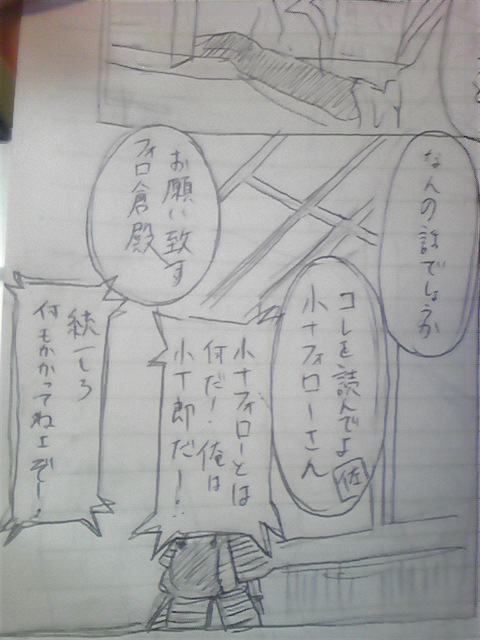 なんの話でしょうか
コレを読んでよ佐
小十フォローさん
お願い致す
フォロ倉殿
小十フォローとは
何だ!俺は
小十郎だー!
統一しろ
何もかかってねェぞー!